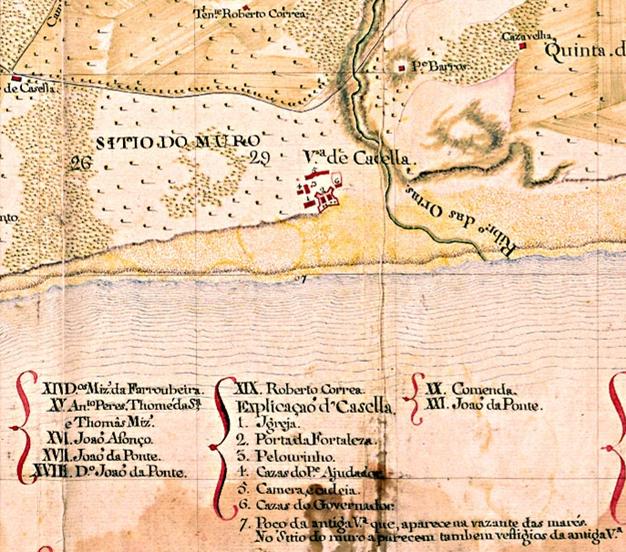 Tenᵗᵉ Roberto Correa.
Cazavelha.
Quinta.d
Pᵉ Barros.
de Casella.
SITIO.DO MURO
26
29
Vᵃ de Cacella.
Ribrᵃ das Ortas
nto
7
XIV Dᵒˢ Mizˢ da Farroubeira.
XV Anᵗᵒ Peres, Thomé da Sᵃ
e Thomás Mizˢ.
XVI. Joaõ Afonço.
XVII. Joaõ da Ponte.
XVIII. Dᵒ Joaõ da Ponte.
XIX. Roberto Correa.
Explicaçaõ dᵉ Casella.
1. Igreja.
2. Porta da Fortaleza.
3. Pelourinho.
4. Cazas do Pᵉ Ajudador
5. Camera, e cadeia.
6. Cazas do Governador
7. Poço da antiga Vᵃ que, aparece na vazante das marés.
No Sitio do muro aparecem tambem vestigios da antiga Vᵃ.
XX. Comenda.
XXI. Joaõ da Ponte.